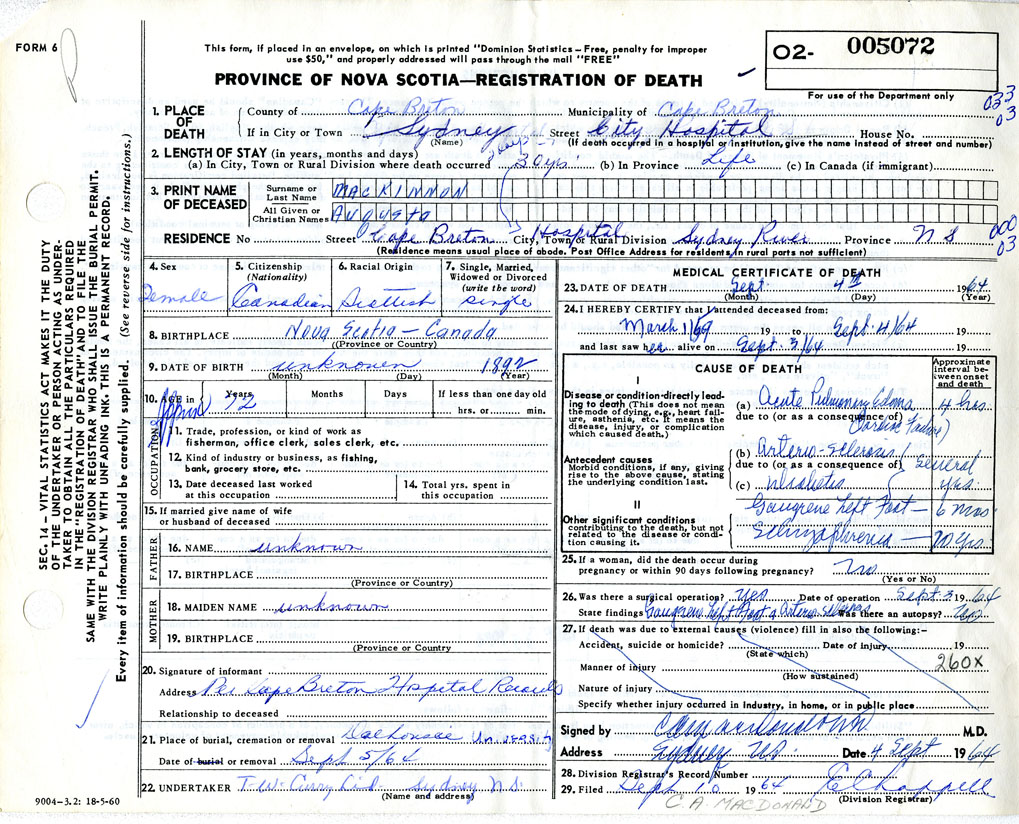 FORM 6
This form, if placed in an envelope, on which is printed "Dominion Statistics – Free, penalty for improper
use $50," and properly addressed will pass through the mail "FREE"
PROVINCE OF NOVA SCOTIA—REGISTRATION OF DEATH
O2- 005072
For use of the Department only
033
03
1. PLACE OF DEATH
County of Cape Breton Municipality of Cape Breton
If in City or Town Sydney Street City Hospital House No.
(Name) (If death occurred in a hospital or institution, give the name instead of street and number)
2. LENGTH OF STAY (in years, months and days)
(a) In City, Town or Rural Division where death occurred 30 yrs. (b) In Province Life (c) In Canada (if immigrant)
3. PRINT NAME OF DECEASED
Surname or Last Name MACKINNON
All Given or Christian Names AUGUSTA
RESIDENCE No. Street Cape Breton Hospital City, Town or Rural Division Sydney River Province N S
(Residence means usual place of abode. Post Office Address for residents in rural parts not sufficient)
000
03
4. Sex
Female
5. Citizenship (Nationality)
Canadian
6. Racial Origin
Scottish
7. Single, Married, Widowed or Divorced (write the word)
single
8. BIRTHPLACE Nova Scotia – Canada
(Province or County)
9. DATE OF BIRTH unknown 1892
(Month) (Day) (Year)
10. AGE in Years 72 Months Days If less than one day old
hrs. or min.
OCCUPATION
11. Trade, profession, or kind of work as
fisherman, office clerk, sales clerk, etc.
12. Kind of industry or business, as fishing,
bank, grocery store, etc.
13. Date deceased last worked
at this occupation
14. Total yrs. spent in
this occupation
15. If married give name of wife
or husband of deceased
FATHER
16. NAME unknown
17. BIRTHPLACE
(Province or Country)
MOTHER
18. MAIDEN NAME unknown
19. BIRTHPLACE
(Province or Country)
20. Signature of informant
Address Per Cape Breton Hospital Records
Relationship to deceased
21. Place of burial, cremation or removal Dalhousie University
Date of burial or removal Sept 5/64
22. UNDERTAKER T. W. Curry Ltd. Sydney N.S.
(Name and address)
9004–3.2: 18-5-60
MEDICAL CERTIFICATE OF DEATH
23. DATE OF DEATH Sept. 4th 1964
(Month) (Day) (Year)
24. I HEREBY CERTIFY that I attended deceased from:
March 1/59 19 to Sept 4/64 19
and last saw her alive on Sept. 3/64 19
CAUSE OF DEATH
Approximate interval between onset and death
I
Disease or condition directly leading to death (This does not mean
the mode of dying, e.g., heart failure, asthenia, etc. It means the
disease, injury, or complication
which caused death.)
(a) Acute Pulmonary Edema 4 hrs
due to (or as a consequence of) (Cardiac Failure)
Antecedent causes
Morbid conditions, if any, giving
rise to the above cause, stating
the underlying condition last.
(b) Arterio-sclerosis
due to (or as a consequence of) Several
(c) Diabetes yrs.
II
Other significant conditions
contributing to the death, but not
related to the disease or condition causing it.
Gangrene Left Foot – 6 mos
Schizophrenia – 20 yrs.
25. If a woman, did the death occur during
pregnancy or within 90 days following pregnancy? No
(Yes or No)
26. Was there a surgical operation? Yes Date of operation Sept 3 1964
State findings Gangrene Left Foot Arterio sclerosis Was there an autopsy?
27. If death was due to external causes (violence) fill in also the following:–
Accident, suicide or homicide? Date of injury 19
(State which)
260X
Manner of injury
(How sustained)
Nature of injury
Specify whether injury occurred in industry, in home, or in public place
Signed by M.D.
Address Sydney N.S. Date 4 Sept 1964
28. Division Registrar's Record Number
29. Filed Sept 10 1964 E Chappell
C. A. MACDONALD (Division Registrar)
SEC. 14 – VITAL STATISTICS ACT MAKES IT THE DUTY
OF THE UNDERTAKER OR PERSON ACTING AS UNDERTAKER TO OBTAIN ALL THE PARTICULARS REQUIRED
IN THE "REGISTRATION OF DEATH" AND TO FILE THE
SAME WITH THE DIVISION REGISTRAR WHO SHALL ISSUE THE BURIAL PERMIT.
WRITE PLAINLY WITH UNFADING INK. THIS IS A PERMANENT RECORD.
Every item of information should be carefully supplied. (See reverse side for instructions.)